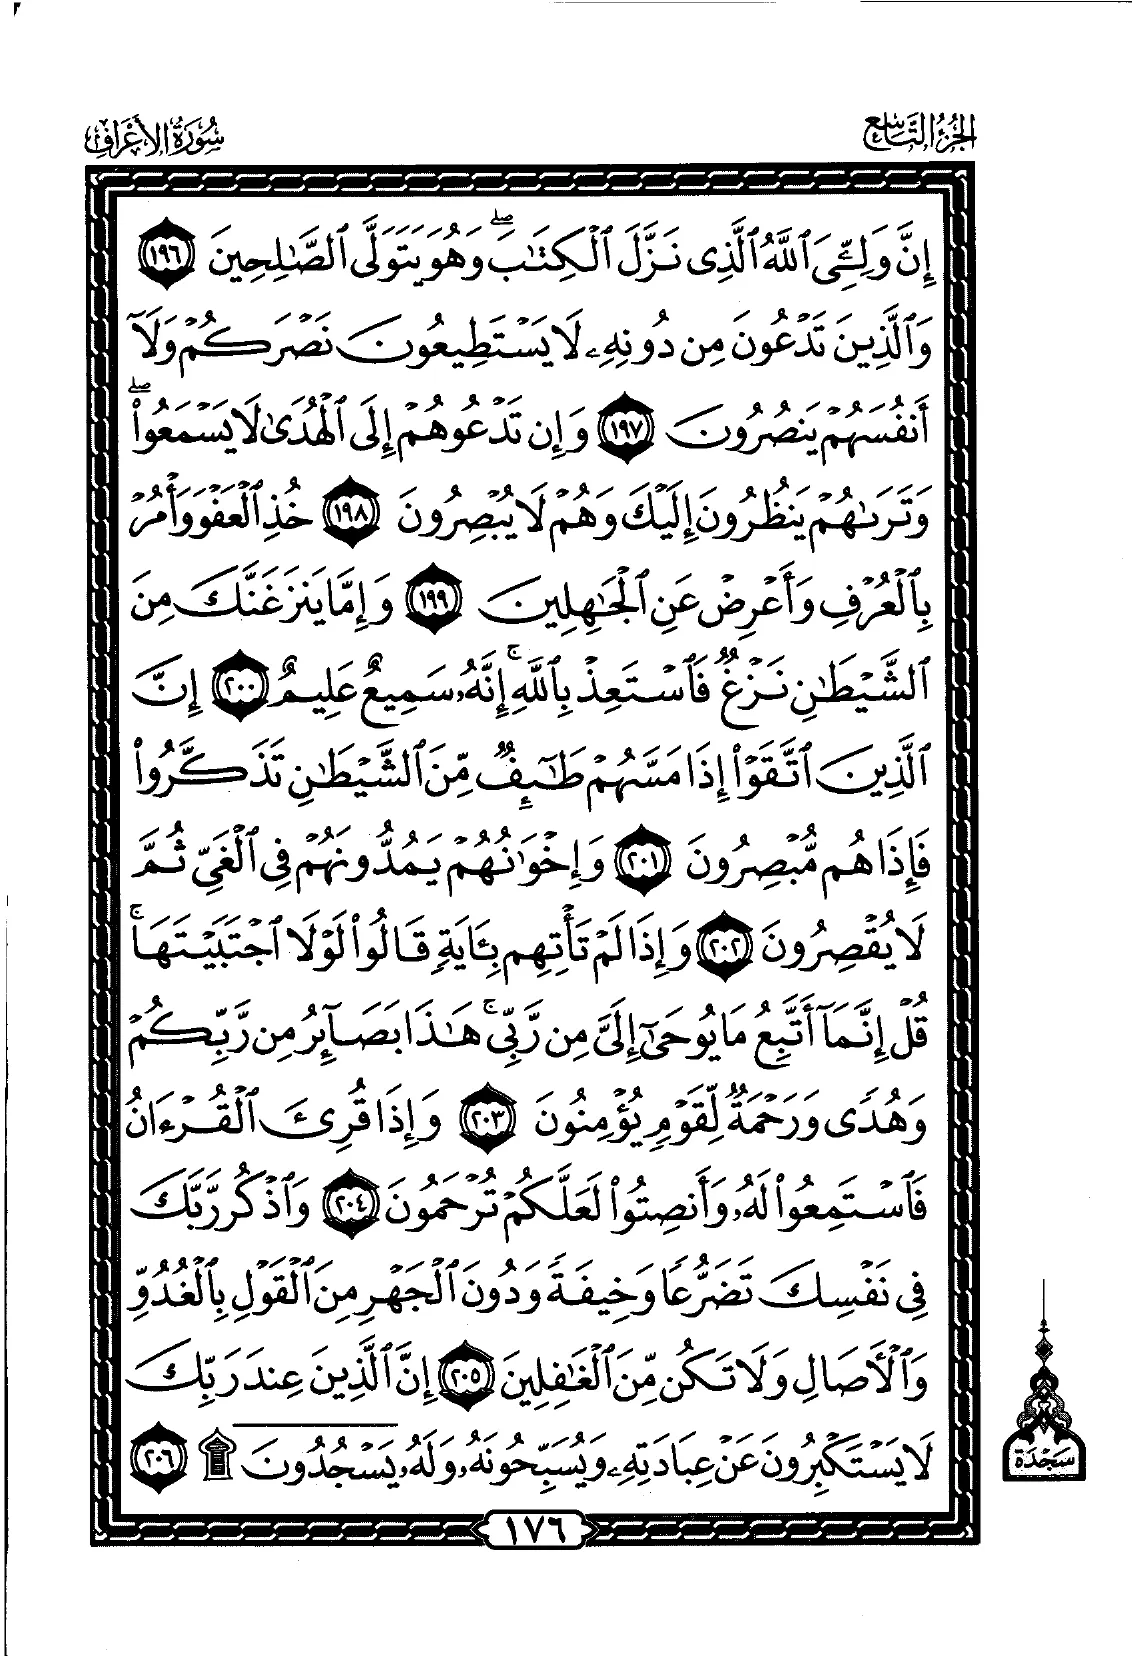 الجزء التاسع
سورة الأعراف
إِنَّ وَلِـِّۧيَ ٱللَّهُ ٱلَّذِى نَزَّلَ ٱلْكِتَٰبَۖ وَهُوَ يَتَوَلَّى ٱلصَّٰلِحِينَ ١٩٦
وَٱلَّذِينَ تَدْعُونَ مِن دُونِهِۦ لَا يَسْتَطِيعُونَ نَصْرَكُمْ وَلَآ
أَنفُسَهُمْ يَنصُرُونَ ١٩٧ وَإِن تَدْعُوهُمْ إِلَى ٱلْهُدَىٰ لَا يَسْمَعُوا۟ۖ
وَتَرَىٰهُمْ يَنظُرُونَ إِلَيْكَ وَهُمْ لَا يُبْصِرُونَ ١٩٨ خُذِ ٱلْعَفْوَ وَأْمُرْ
بِٱلْعُرْفِ وَأَعْرِضْ عَنِ ٱلْجَٰهِلِينَ ١٩٩ وَإِمَّا يَنزَغَنَّكَ مِنَ
ٱلشَّيْطَٰنِ نَزْغٌ فَٱسْتَعِذْ بِٱللَّهِۚ إِنَّهُۥ سَمِيعٌ عَلِيمٌ ٢٠٠ إِنَّ
ٱلَّذِينَ ٱتَّقَوْا۟ إِذَا مَسَّهُمْ طَٰٓئِفٌ مِّنَ ٱلشَّيْطَٰنِ تَذَكَّرُوا۟
فَإِذَا هُم مُّبْصِرُونَ ٢٠١ وَإِخْوَٰنُهُمْ يَمُدُّونَهُمْ فِى ٱلْغَىِّ ثُمَّ
لَا يُقْصِرُونَ ٢٠٢ وَإِذَا لَمْ تَأْتِهِم بِـَٔايَةٍ قَالُوا۟ لَوْلَا ٱجْتَبَيْتَهَاۚ
قُلْ إِنَّمَآ أَتَّبِعُ مَا يُوحَىٰٓ إِلَىَّ مِن رَّبِّىۚ هَٰذَا بَصَآئِرُ مِن رَّبِّكُمْ
وَهُدًى وَرَحْمَةٌ لِّقَوْمٍ يُؤْمِنُونَ ٢٠٣ وَإِذَا قُرِئَ ٱلْقُرْءَانُ
فَٱسْتَمِعُوا۟ لَهُۥ وَأَنصِتُوا۟ لَعَلَّكُمْ تُرْحَمُونَ ٢٠٤ وَٱذْكُر رَّبَّكَ
فِى نَفْسِكَ تَضَرُّعًا وَخِيفَةً وَدُونَ ٱلْجَهْرِ مِنَ ٱلْقَوْلِ بِٱلْغُدُوِّ
وَٱلْـَٔاصَالِ وَلَا تَكُن مِّنَ ٱلْغَٰفِلِينَ ٢٠٥ إِنَّ ٱلَّذِينَ عِندَ رَبِّكَ
لَا يَسْتَكْبِرُونَ عَنْ عِبَادَتِهِۦ وَيُسَبِّحُونَهُۥ وَلَهُۥ يَسْجُدُونَ ۩ ٢٠٦
سَجْدَة
١٧٦